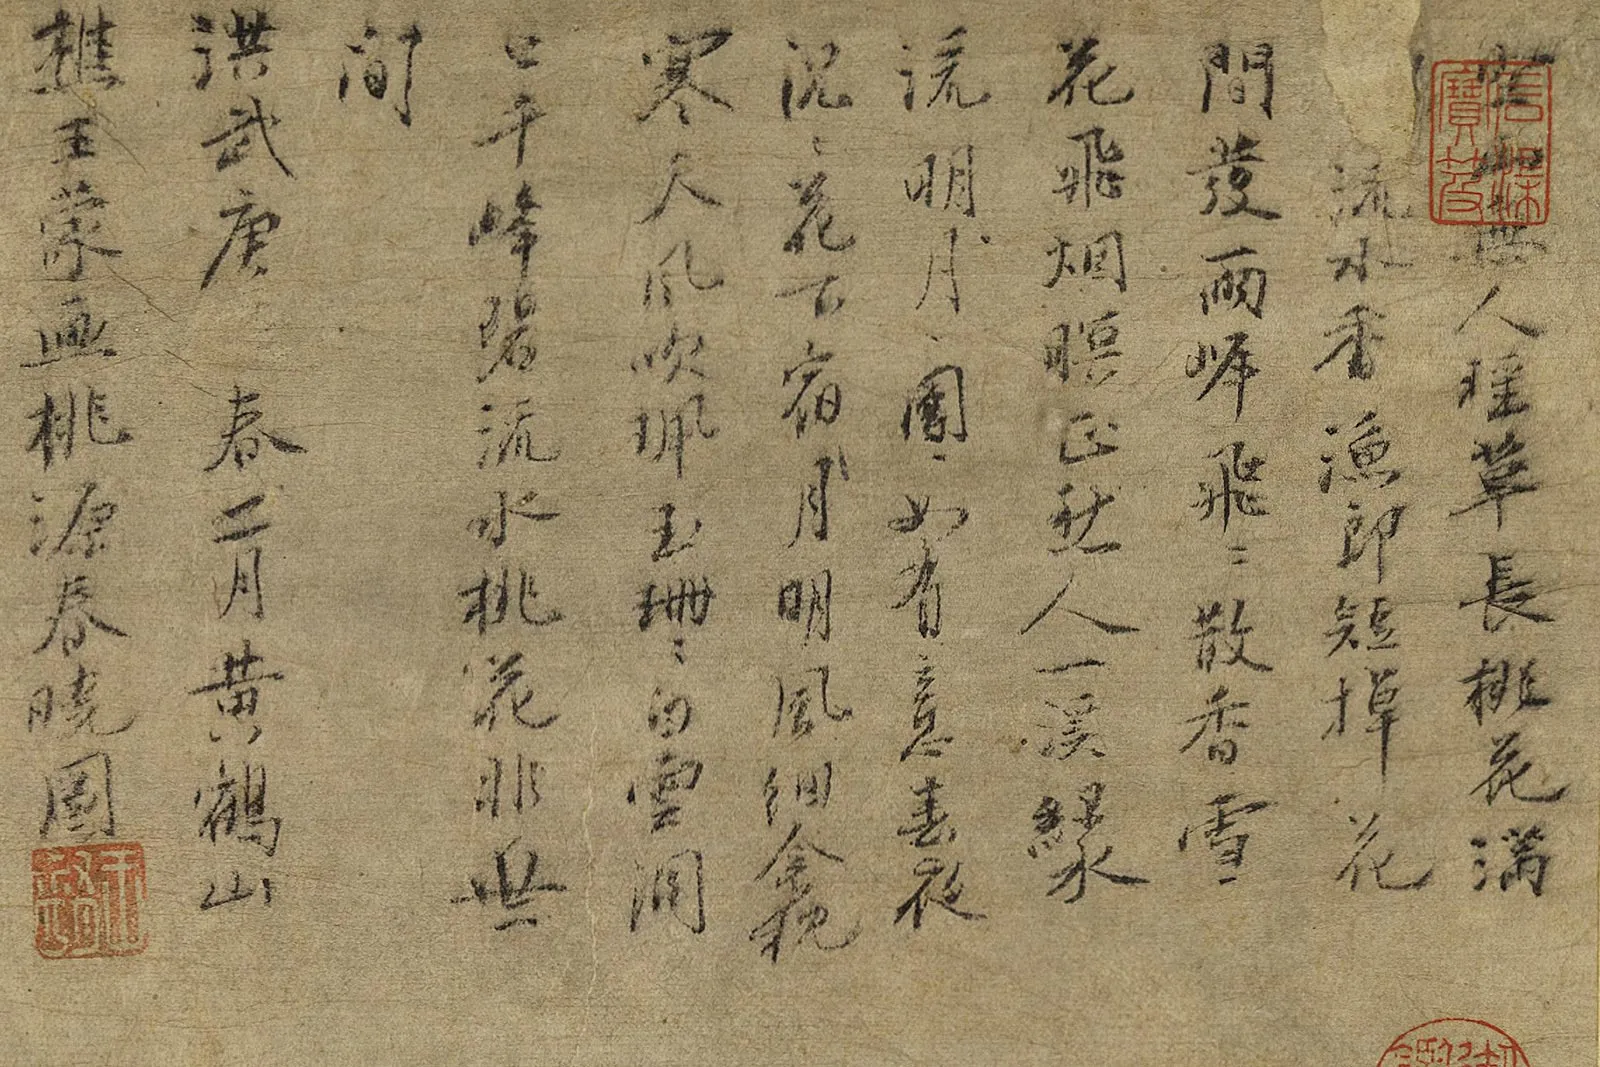 山無人瑤草長桃花滿
流水香漁郎短棹花
間發兩岸飛〻散香雪
花飛烟暝正愁人一溪綠水
流明月〻團〻如有意春夜
沉〻花下宿月明風細衾枕
寒天風吹珮玉珊〻白雲洞
口千峰碧流水桃花非世
間
洪武庚春二月黃鶴山
樵王蒙畫桃源春曉圖